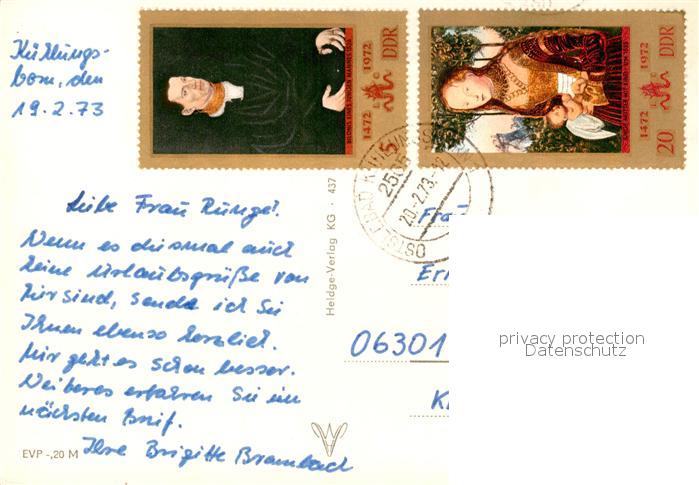 Kühlungs-
born, den
19.2.73
BILDNIS EINES
1472 1972
5 DDR
1472 1972
20 DDR
2565
20.-2.73.-12
OSTSEEBAD KÜHLUNGSBORN
Liebe Frau Runge!
Wenn es diesmal auch
keine Urlaubsgrüße von
mir sind, sende ich Sie
Ihnen ebenso herzlich.
Mir geht es schon besser.
Weiteres erfahren Sie im
nächsten Brief.
Ihre Brigitte Brambach
EVP -,20 M
Heldge-Verlag KG · 437
Frau
06301
privacy protection
Datenschutz